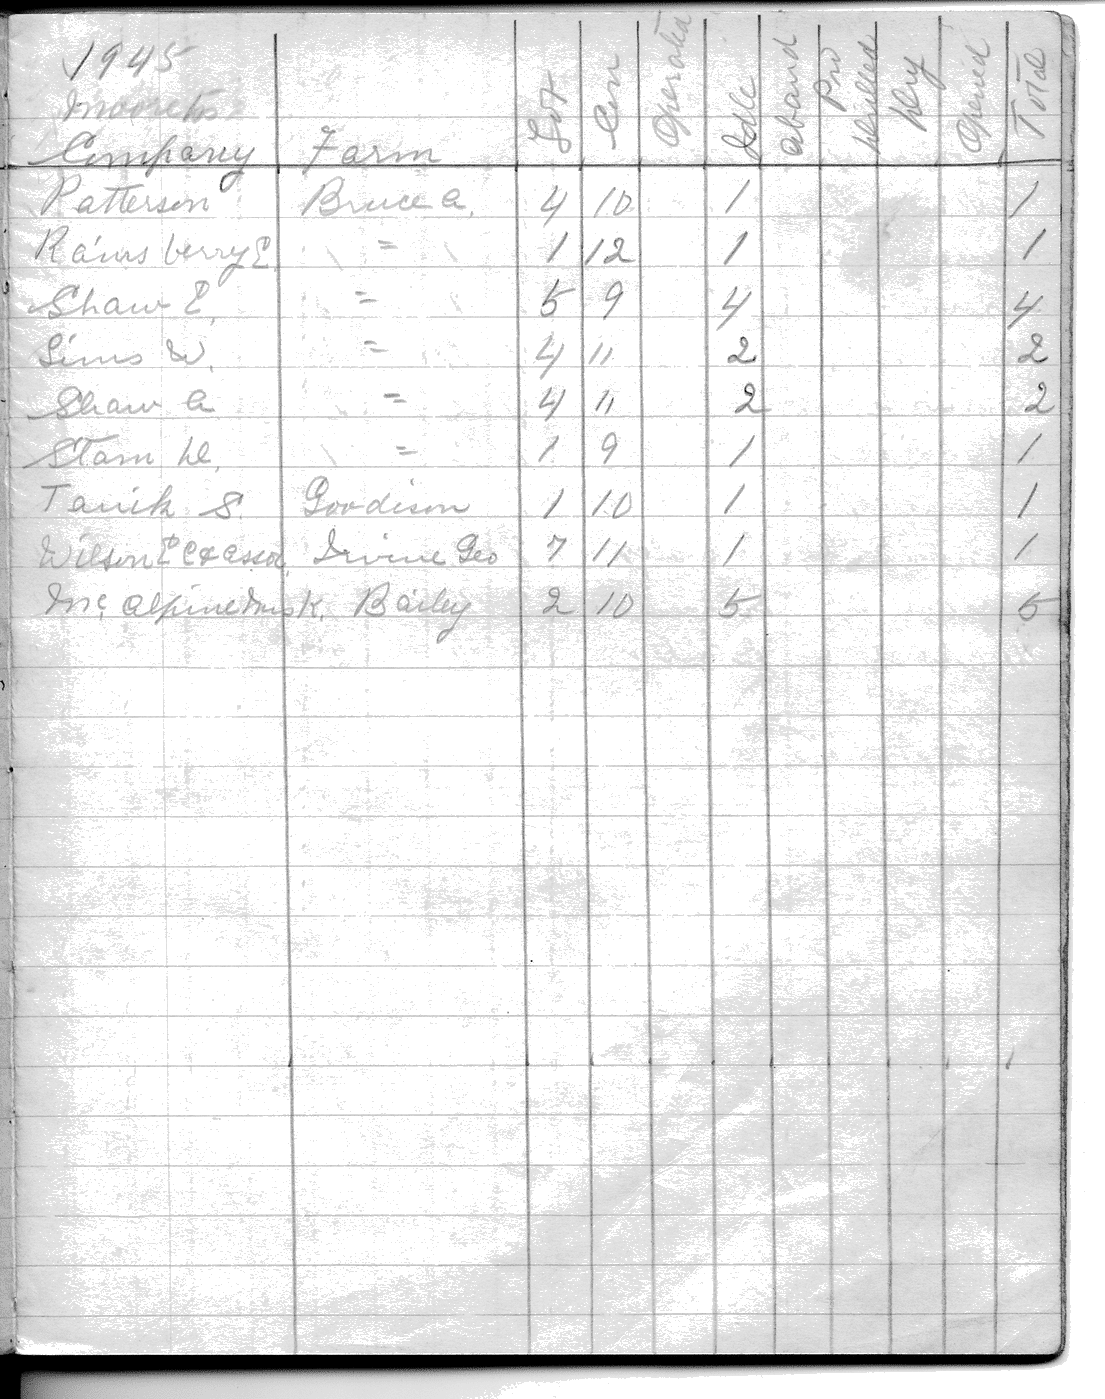 1945
Company Farm Lot Con Operated Idle Aband Pro Drilled Dry Opened Total
Patterson Bruce A. 4 10 1 1
Rainsberry E. = 1 12 1 1
Shaw E. = 5 9 4 4
Sims W. = 4 11 2 2
Shaw A = 4 11 2 2
Stam H. = 1 9 1 1
Tanik S. Goodison 1 10 1 1
Wilson E C & Assoc. Irvine Geo 7 11 1 1
Mc Alpine Mrs K. Bailey 2 10 5 5